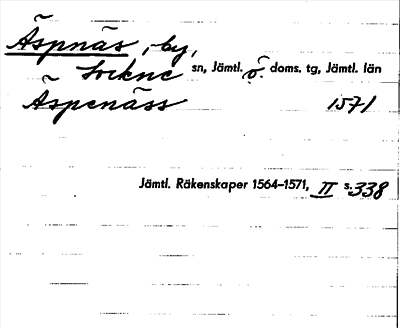 Äspnäs, by,
Lockne sn, Jämtl. ö. doms. tg, Jämtl. län
Äspenäss 1571
Jämtl. Räkenskaper 1564–1571, II s. 338